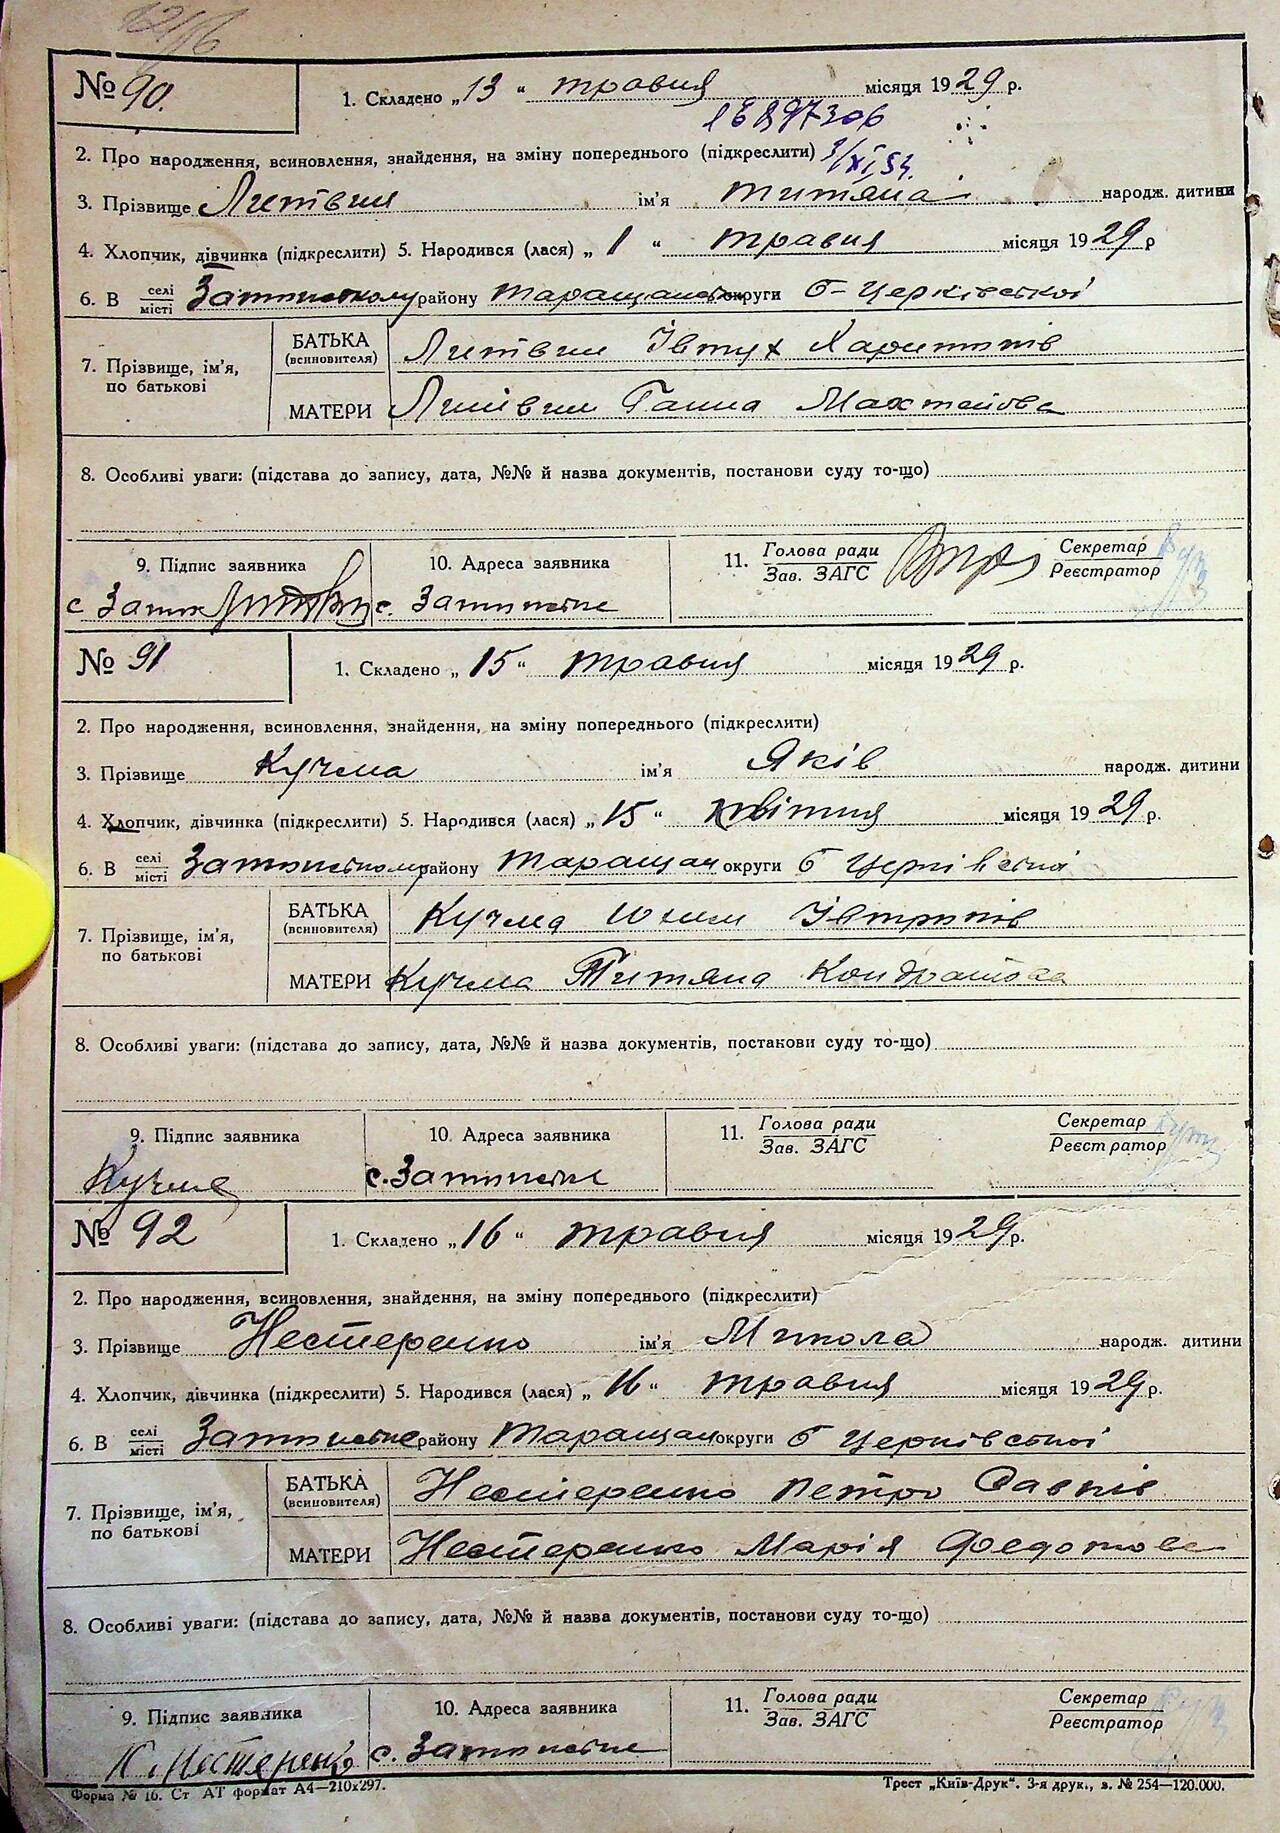 № 90. 1. Складено „13“ травня місяця 1929 р.
2. Про народження, всиновлення, знайдення, на зміну попереднього (підкреслити)
3. Прізвище Литвин ім'я Титяна народж. дитини
4. Хлопчик, дівчинка (підкреслити) 5. Народився (лася) „1“ травня місяця 1929 р
6. В селі місті району Таращанськ округи Б-Церківської
7. Прізвище, ім'я, по батькові
БАТЬКА (всиновителя) Литвин Івтух Харитинів
МАТЕРИ Литвин Ганна
8. Особливі уваги: (підстава до запису, дата, №№ й назва документів, постанови суду то-що)
9. Підпис заявника 10. Адреса заявника 11. Голова ради Зав. ЗАГС Секретар Реєстратор
№ 91 1. Складено „15“ травня місяця 1929 р.
2. Про народження, всиновлення, знайдення, на зміну попереднього (підкреслити)
3. Прізвище Кучма ім'я Яків народж. дитини
4. Хлопчик, дівчинка (підкреслити) 5. Народився (лася) „15“ квітня місяця 1929 р.
6. В селі місті району Таращан округи Б Церківської
7. Прізвище, ім'я, по батькові
БАТЬКА (всиновителя) Кучма Юхим
МАТЕРИ Кучма Титяна Кондратова
8. Особливі уваги: (підстава до запису, дата, №№ й назва документів, постанови суду то-що)
9. Підпис заявника 10. Адреса заявника 11. Голова ради Зав. ЗАГС Секретар Реєстратор
Кучма
№ 92 1. Складено „16“ травня місяця 1929 р.
2. Про народження, всиновлення, знайдення, на зміну попереднього (підкреслити)
3. Прізвище Нестеренко ім'я Микола народж. дитини
4. Хлопчик, дівчинка (підкреслити) 5. Народився (лася) „16“ травня місяця 1929 р.
6. В селі місті району Таращан округи Б Церківської
7. Прізвище, ім'я, по батькові
БАТЬКА (всиновителя) Нестеренко Петро Савків
МАТЕРИ Нестеренко Марія Федотова
8. Особливі уваги: (підстава до запису, дата, №№ й назва документів, постанови суду то-що)
9. Підпис заявника 10. Адреса заявника 11. Голова ради Зав. ЗАГС Секретар Реєстратор
Форма № 16. Ст АТ формат А4—210х297. Трест „Київ-Друк“. 3-я друк., з. № 254—120.000.